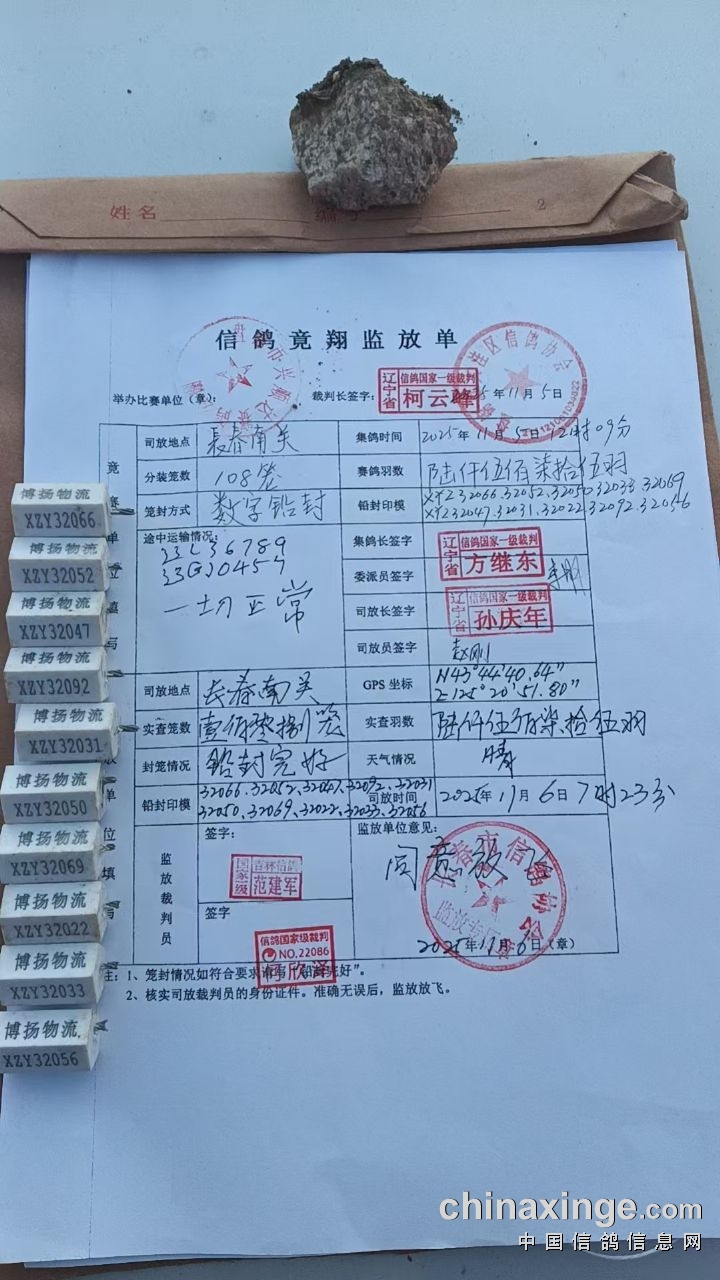 姓名 编号 2
信鸽竟翔监放单
举办比赛单位（章）： 裁判长签字： 辽宁省 信鸽国家一级裁判 柯云峰 2025年11月5日
司放地点 长春南关 集鸽时间 2025年11月5日12时09分
分装笼数 108笼 赛鸽羽数 陆仟伍佰柒拾伍羽
笼封方式 数字铅封 铅封印模 XYZ32066.32052.32050.32033.32069
XYZ32047.32031.32022.32092.32056
途中运输情况： 集鸽长签字 辽宁省 信鸽国家一级裁判 方继东
一切正常 委派员签字
司放长签字 辽宁省 信鸽国家一级裁判 孙庆年
司放员签字 赵刚
司放地点 长春南关 GPS 坐标 N43°44′40.64″
E125°20′51.80″
实查笼数 壹佰零捌笼 实查羽数 陆仟伍佰柒拾伍羽
封笼情况 铅封完好 天气情况 晴
铅封印模 32066.32052.32047.32092.32031
32050.32069.32022.32033.32056 司放时间 2025年11月6日7时23分
监放裁判员 签字： 国家一级 吉林信鸽 范建军
签字 信鸽国家级裁判 NO.22086 柯欣泽
监放单位意见：
同意放飞
2025年11月6日（章）
注：1、笼封情况如符合要求请写“铅封完好”。
2、核实司放裁判员的身份证件。准确无误后，监放放飞。
博扬物流
XZY32066
博扬物流
XZY32052
博扬物流
XZY32047
博扬物流
XZY32092
博扬物流
XZY32031
博扬物流
XZY32050
博扬物流
XZY32069
博扬物流
XZY32022
博扬物流
XZY32033
博扬物流
XZY32056
chinaxinge.com
中国信鸽信息网